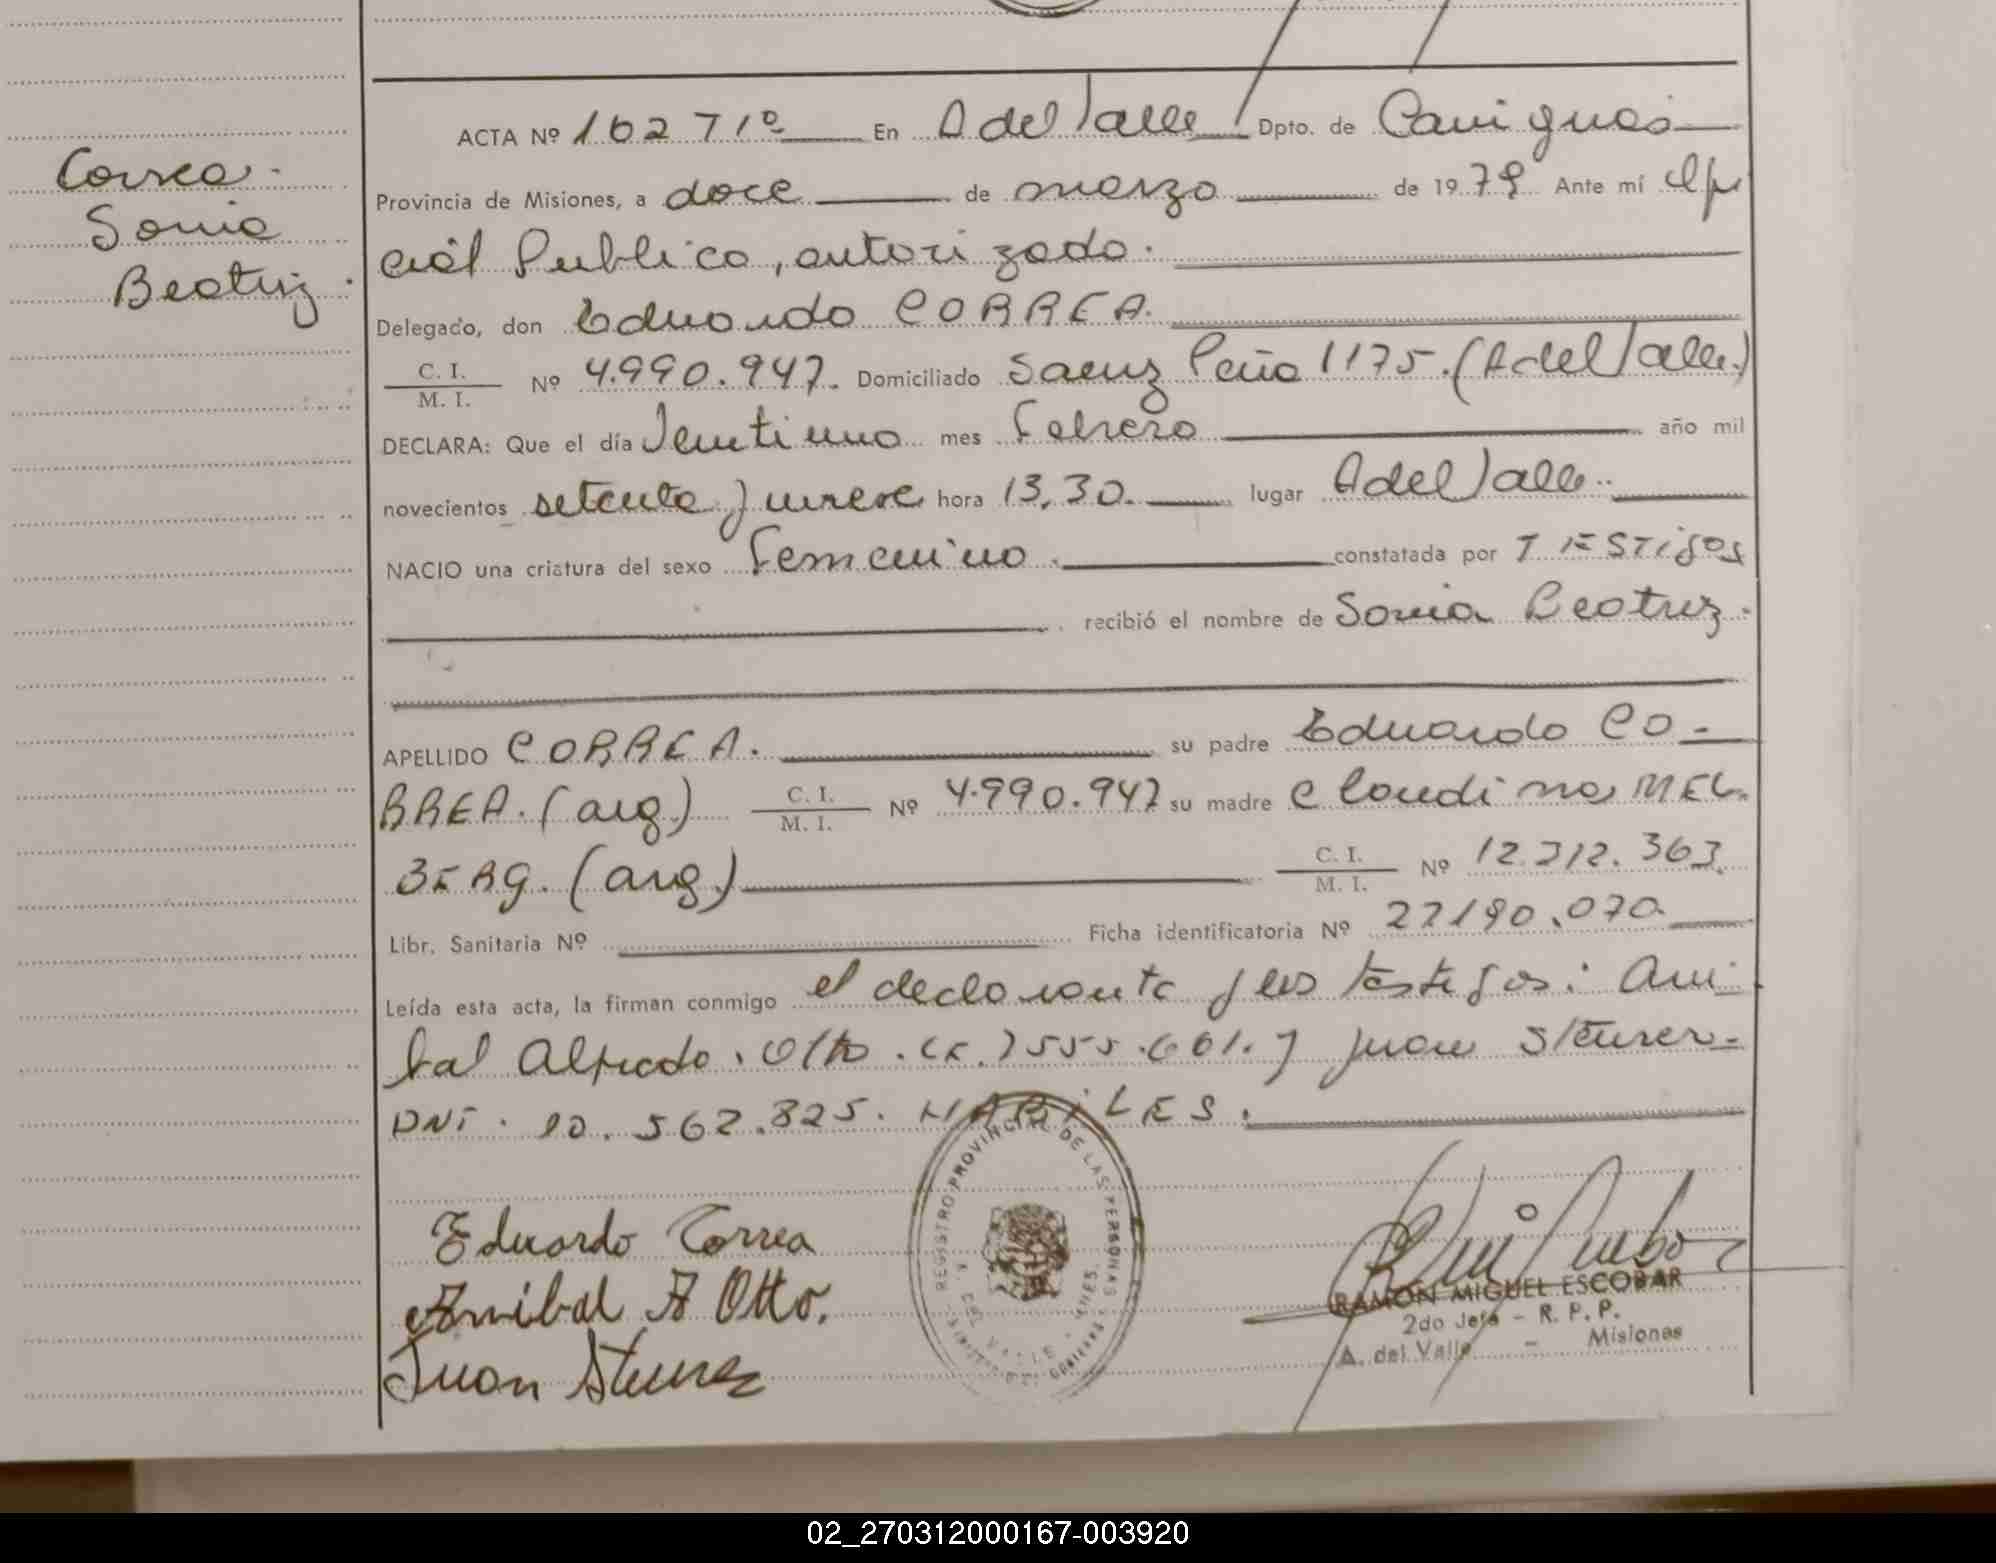 Correa.
Sonia
Beatriz.
ACTA Nº 162 T1º En A del Valle Dpto. de Cainguas
Provincia de Misiones, a doce de marzo de 1979 Ante mí Ofi
cial Publico, autorizado.
Delegado, don Eduardo CORREA.
C. I.
M. I. Nº 4.990.947. Domiciliado Saenz Peña 1175. (A del Valle.)
DECLARA: Que el día Veintiuno mes Febrero año mil
novecientos setenta y nueve hora 13,30. lugar A del Valle.
NACIO una criatura del sexo Femenino. constatada por TESTigos
recibió el nombre de Sonia Beatriz.
APELLIDO CORREA. su padre Eduardo CO-
RREA. (arg) C. I.
M. I. Nº 4.990.947 su madre Claudina MEL
BERG. (arg) C. I.
M. I. Nº 12.312.363.
Libr. Sanitaria Nº Ficha identificatoria Nº 27190.070
Leída esta acta, la firman conmigo el declarante y los testigos: Ani
bal Alfredo Otto. y Juan
DNI. 10.562.825. HABiLES.
Eduardo Correa
Anibal A Otto.
Juan
REGISTRO PROVINCIAL DE LAS PERSONAS
A. DEL VALLE
RAMON MIGUEL ESCOBAR
2do Jefe - R. P. P.
A. del Valle - Misiones
02_270312000167-003920